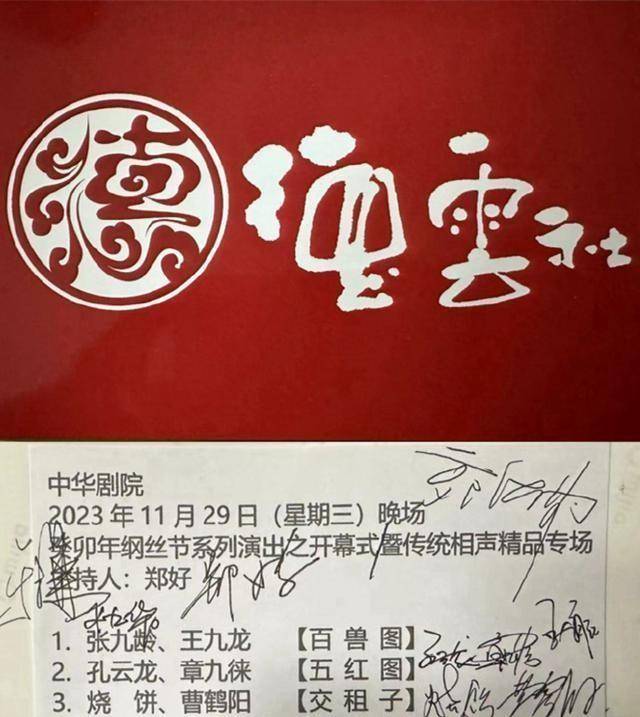 德
德雲社
中华剧院
2023年11月29日（星期三）晚场
癸卯年纲丝节系列演出之开幕式暨传统相声精品专场
主持人：郑好 郑好
1. 张九龄、王九龙 【百兽图】
2. 孔云龙、章九徕 【五红图】
3. 烧 饼、曹鹤阳 【交租子】